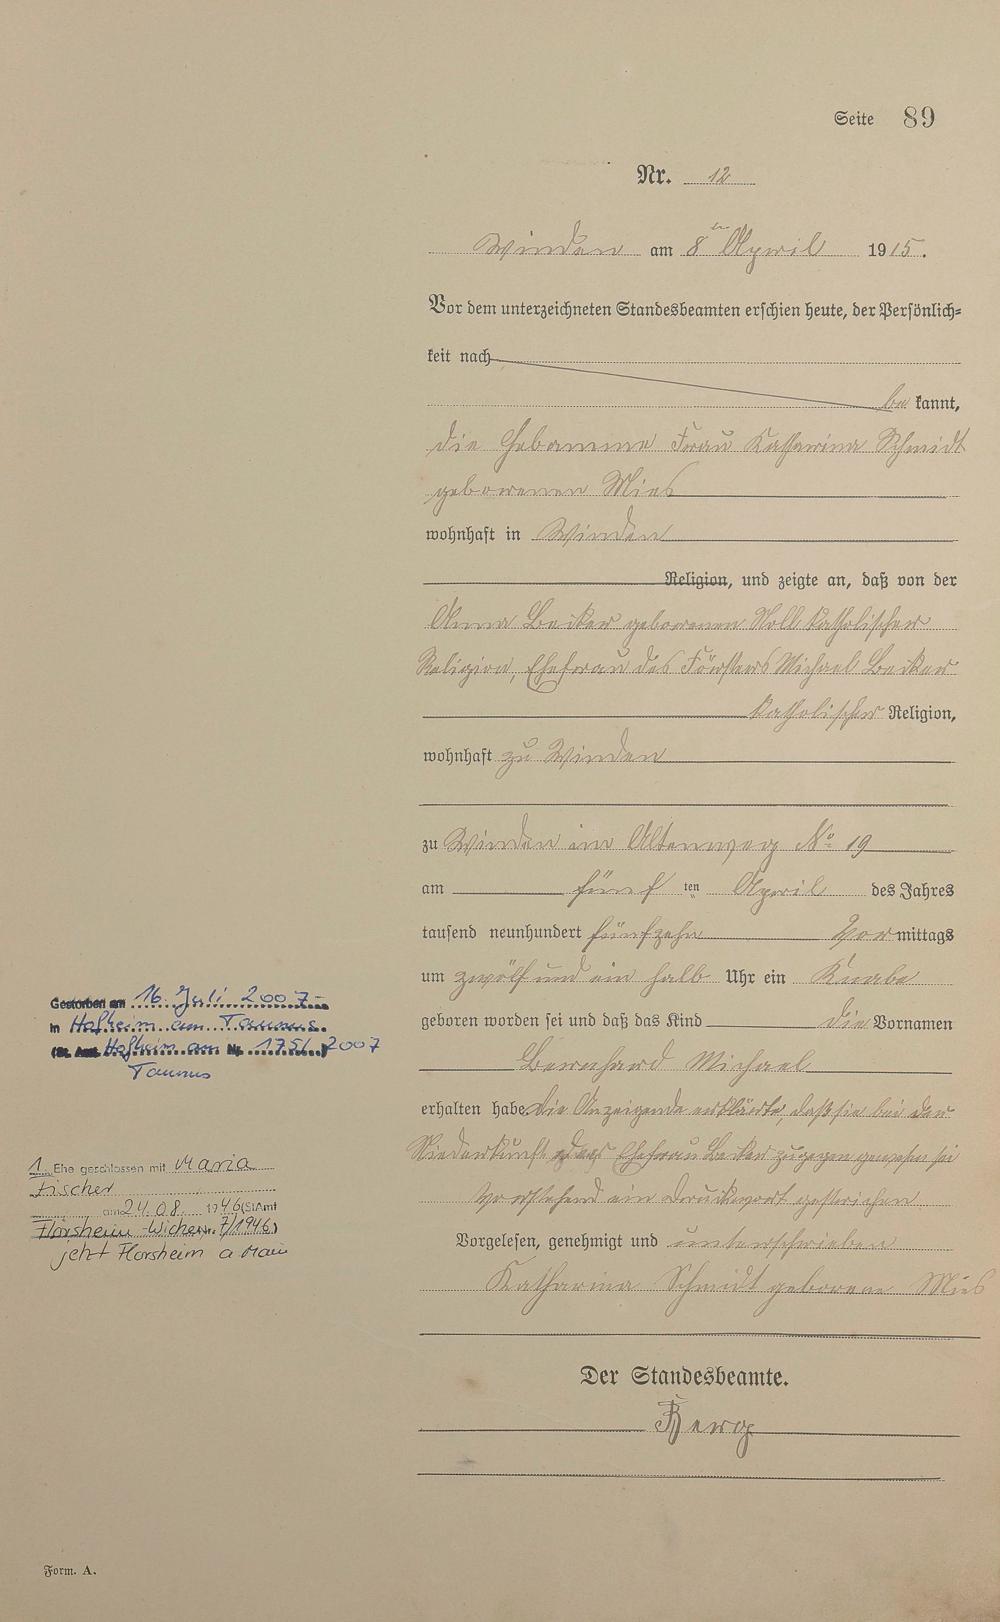 Seite 89
Nr. 12
Winden am 8ten April 1915.
Vor dem unterzeichneten Standesbeamten erschien heute, der Persönlich=
keit nach
be kannt,
die Hebamme Frau Katharina Schmidt
geborenen Mies
wohnhaft in Winden
Religion, und zeigte an, daß von der
Anna Becker geborenen Noll katholischer
Religion, Ehefrau des Försters Michael Becker
katholischer Religion,
wohnhaft zu Winden
zu Winden im Altenweg No 19
am fünf ten April des Jahres
tausend neunhundert fünfzehn Vormittags
um zwölf und ein halb Uhr ein Knabe
geboren worden sei und daß das Kind die Vornamen
Bernhard Michael
erhalten habe. Die Anzeigende erklärte, daß sie bei der
Niederkunft der Ehefrau Becker zugegen gewesen sei
Vorstehend ein Druckwort gestrichen
Vorgelesen, genehmigt und unterschrieben
Katharina Schmidt geborene Mies
Der Standesbeamte.
Berg
Gestorben am 16. Juli 2007
in Hofheim am Taunus
(St. Amt Hofheim am Nr. 175/2007
Taunus
1. Ehe geschlossen mit Maria
Fischer
am 24.08. 1946 (StAmt
Flörsheim-Wicker Nr. 7/1946)
jetzt Flörsheim a Main
Form. A.